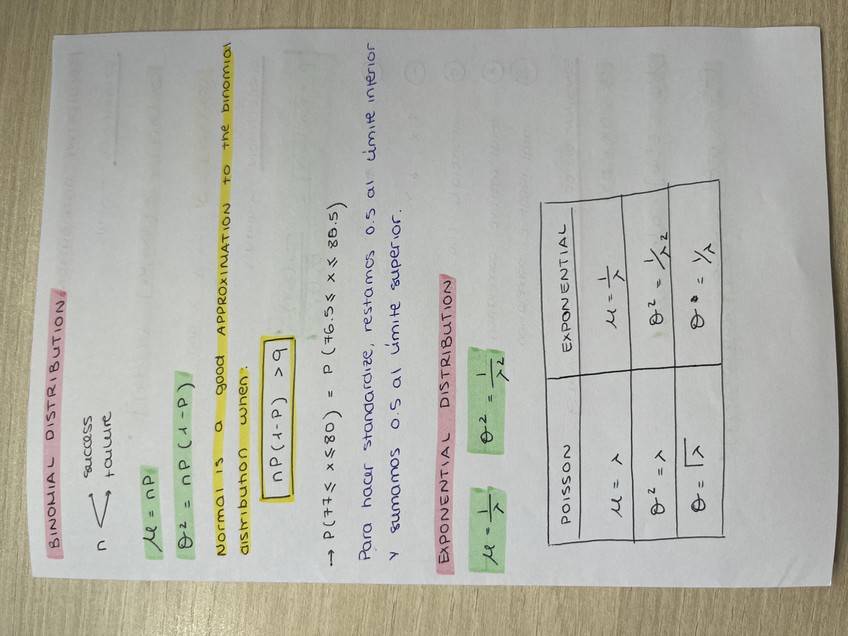 BINOMIAL DISTRIBUTION.
n < success
failure
μ = nP
θ² = nP (1-P)
Normal is a good APPROXIMATION to the binomial
distribution when:
nP (1-P) > 9
→ P (77 ≤ x ≤ 80) = P (76.5 ≤ x ≤ 80.5)
Para hacer standardize, restamos 0.5 al límite inferior
y sumamos 0.5 al límite superior.
EXPONENTIAL DISTRIBUTION
μ = 1/λ θ² = 1/λ²
POISSON EXPONENTIAL
μ = λ μ = 1/λ
θ² = λ θ² = 1/λ²
θ = √λ θ = 1/λ